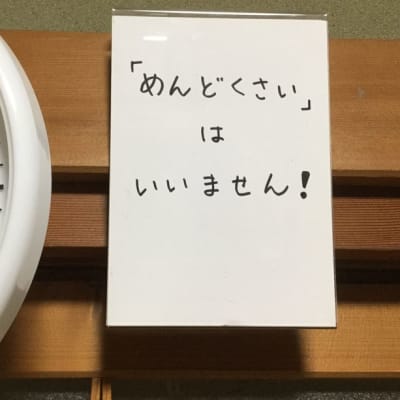 「めんどくさい」
は
いいません!